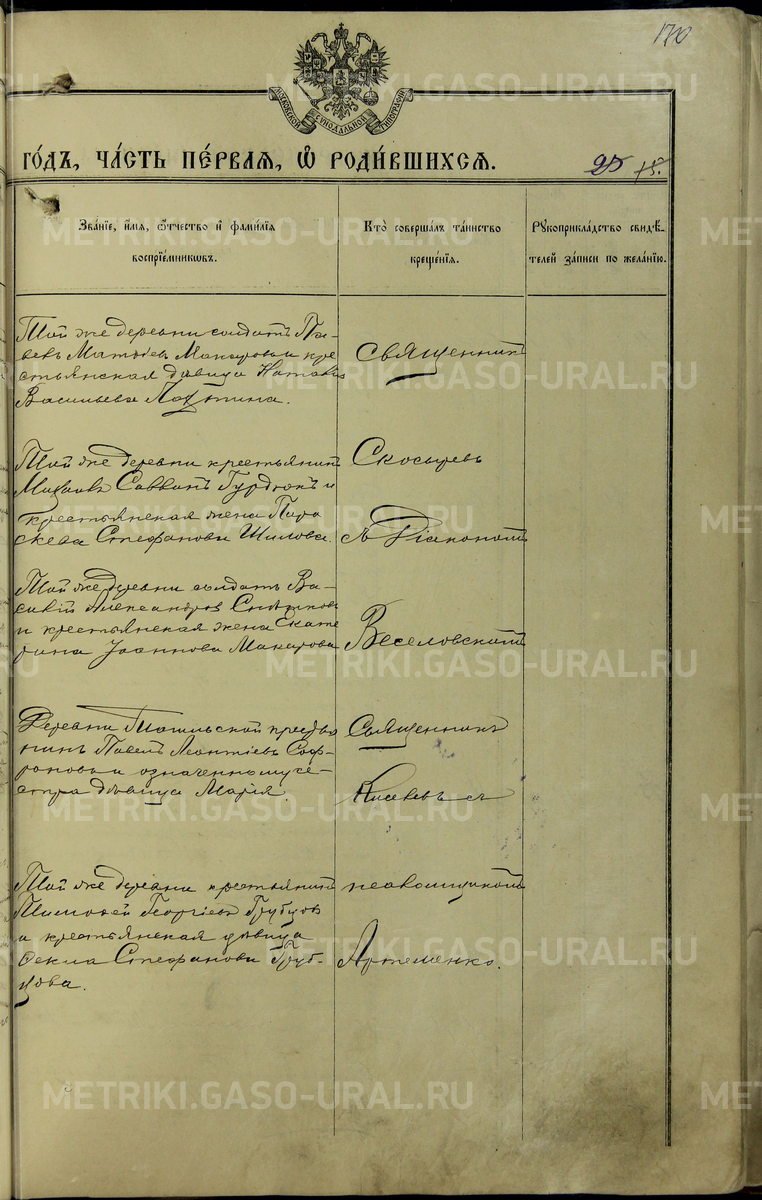 170
МОСКОВСКОЙ СѴНОДАЛЬНОЙ ТИПОГРАФІИ
ГО́ДЪ, ЧА́СТЬ ПЕ́РВАѦ, Ѡ҆ РОДИ́ВШИХСѦ.
25 15.
Зва́нїе, и҆́мѧ, ѻ҆́тчество и҆ фами́лїѧ
воспрїе́мникѡвъ.
Кто̀ соверша́лъ та́инство
креще́нїѧ.
Рꙋкоприкла́дство свидѣ́-
телей за́писи по жела́нїю.
Той же деревни солдатъ Па-
велъ Матѳіевъ Макаровъ и кре
стьянская дѣвица
Васильева
Священникъ
Той же деревни крестьянинъ
Михаилъ Саввинъ и
крестьянская жена Пара
скева Стефанова Шилова.
Скосыревъ
съ Діакономъ
Той же деревни солдатъ Ва-
силій Александровъ
и крестьянская жена Екате
рина Іоаннова Макарова
Веселовскимъ
Деревни крестья
нинъ Павелъ Леонтіевъ Соф-
роновъ и означенному се-
стра дѣвица Марія.
Священникъ
Киселевъ съ
Той же деревни крестьянинъ
Тимофей Георгіевъ Грубцовъ
и крестьянская дѣвица
Ѳекла Стефанова Груб-
цова.
псаломщикомъ
Артеменко.
METRIKI.GASO-URAL.RU